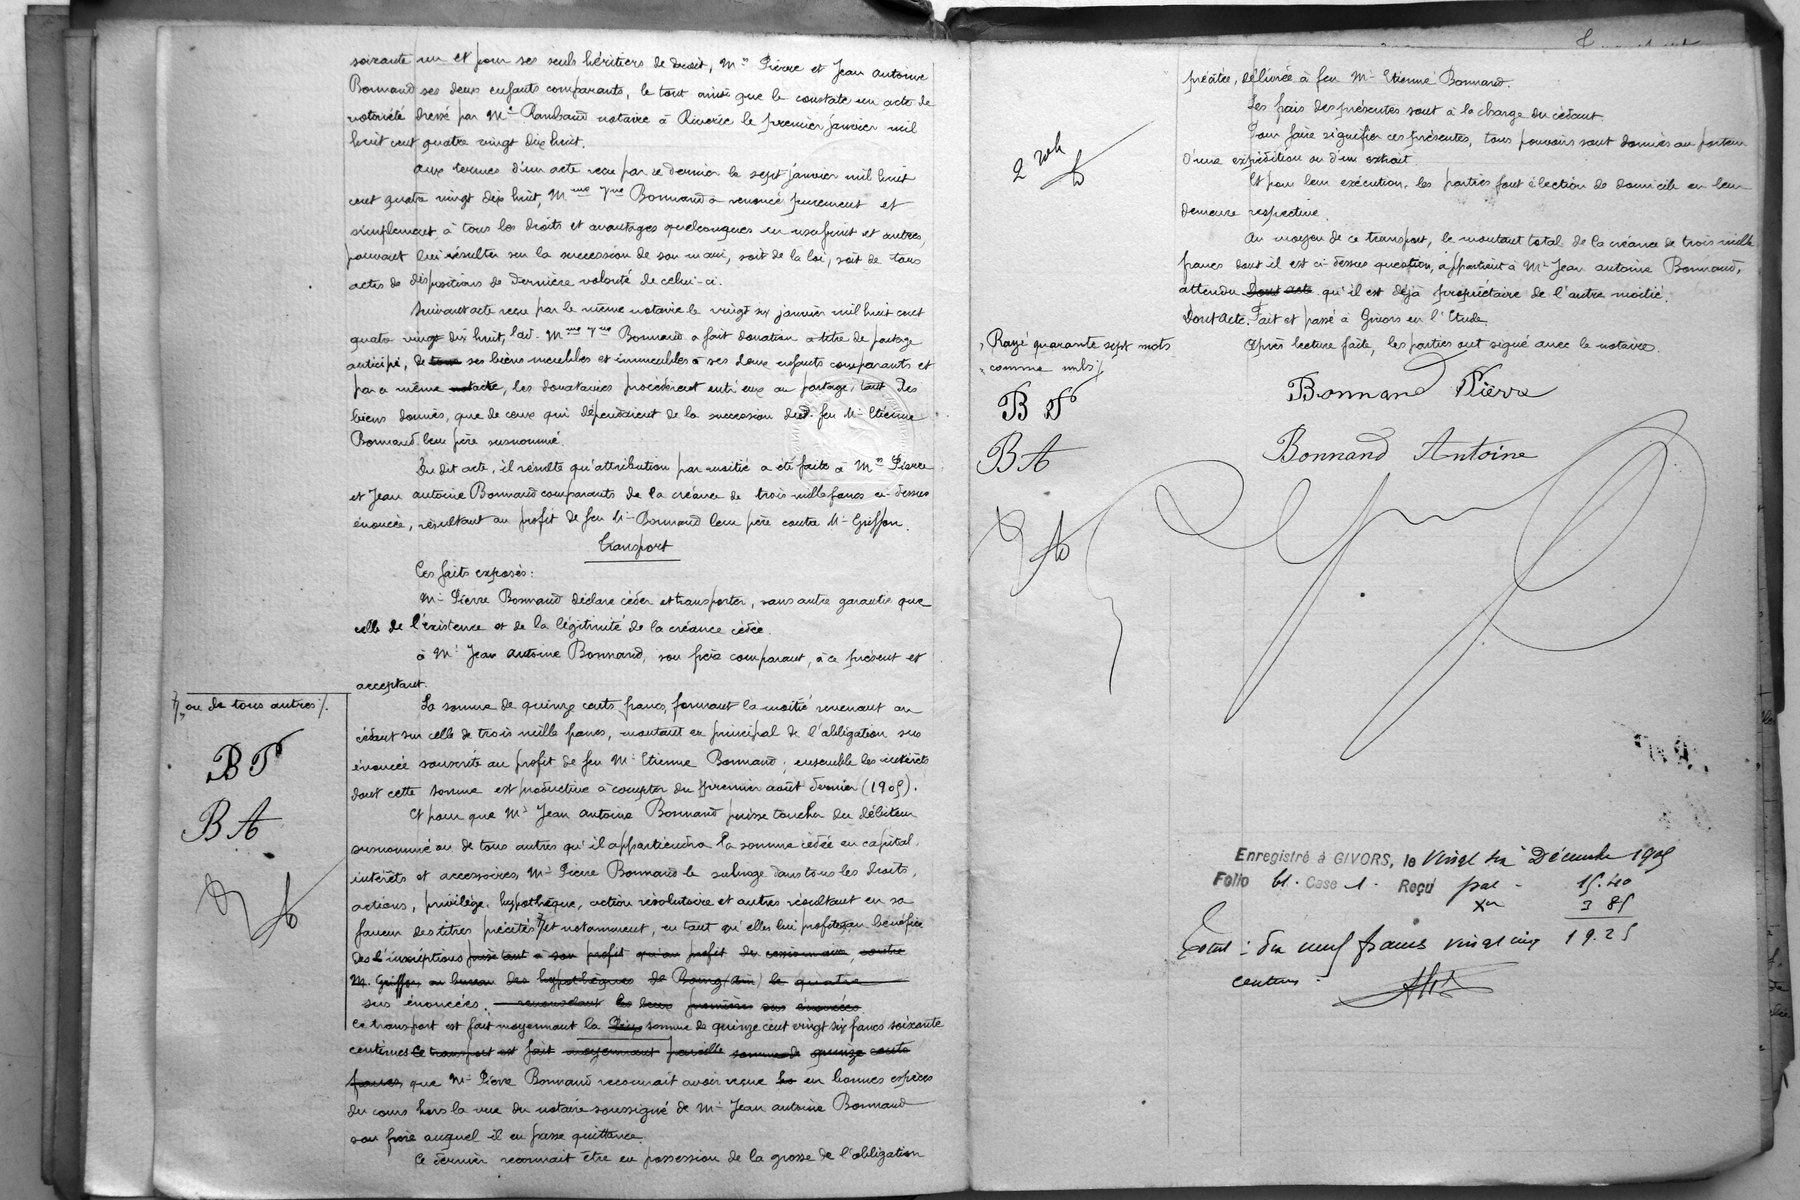 soixante un et pour ses seuls héritiers de droit, Mrs Pierre et Jean Antoine
Bonnand ses deux enfants comparants, le tout ainsi que le constate un acte de
notoriété dressé par Me Rambaud notaire à Riverie le premier janvier mil
huit cent quatre vingt dix huit.
Aux termes d'un acte reçu par ce dernier le sept janvier mil huit
cent quatre vingt dix huit, Mme Vve Bonnand a renoncé purement et
simplement, à tous les droits et avantages quelconques en usufruit et autres,
pouvant lui résulter sur la succession de son mari, soit de la loi, soit de tous
actes de dispositions de dernière volonté de celui-ci.
Suivant acte reçu par le même notaire le vingt six janvier mil huit cent
quatre vingt dix huit, lad. Mme Vve Bonnand a fait donation à titre de partage
anticipé, de tous ses biens meubles et immeubles à ses deux enfants comparants et
par a même acte, les donataires procédèrent entr'eux au partage, tant des
biens donnés, que de ceux qui dépendaient de la succession dud. feu Mr Etienne
Bonnand leur père susnommé.
Du dit acte, il résulte qu'attribution par moitié a été faite à Mrs Pierre
et Jean Antoine Bonnand comparants de la créance de trois mille francs ci-dessus
énoncée, résultant au profit de feu Mr Bonnand leur père contre Mr Griffon.
Transport
Ces faits exposés :
Mr Pierre Bonnand déclare céder et transporter, sans autre garantie que
celle de l'existence et de la légitimité de la créance cédée.
à Mr Jean Antoine Bonnand, son frère comparant, à ce présent et
acceptant.
La somme de quinze cents francs, formant la moitié revenant au
cédant sur celle de trois mille francs, montant en principal de l'obligation sus
énoncée souscrite au profit de feu Mr Etienne Bonnand ; ensemble les intérêts
dont cette somme est productive à compter du premier août dernier (1905).
Et pour que Mr Jean Antoine Bonnand puisse toucher du débiteur
susnommé ou de tous autres qu'il appartiendra la somme cédée en capital,
intérêts et accessoires, Mr Pierre Bonnand le subroge dans tous les droits,
actions, privilège, hypothèque, action résolutoire et autres résultant en sa
faveur des titres précités et notamment, en tant qu'elles lui profitent, au bénéfice
des inscriptions prise tant à son profit qu'au profit du cessionnaire, contre
M. Griffon au bureau des hypothèques de Bourg (Ain) le quatre
sus énoncées, renouvelant les deux premières sus énoncées
Ce transport est fait moyennant la somme de quinze cent vingt six francs soixante
centimes Ce transport est fait moyennant pareille somme de quinze cents
francs que Mr Pierre Bonnand reconnait avoir reçue en bonnes espèces
du cours hors la vue du notaire soussigné de Mr Jean Antoine Bonnand
son frère auquel il en passe quittance.
Ce dernier reconnait être en possession de la grosse de l'obligation
ou de tous autres /.
B P
B A
précitée, délivrée à feu Mr Etienne Bonnand.
Les frais des présentes sont à la charge du cédant.
Pour faire signifier ces présentes, tous pouvoirs sont donnés au porteur
d'une expédition ou d'un extrait.
Et pour leur exécution, les parties font élection de domicile en leur
demeure respective.
Au moyen de ce transport, le montant total de la créance de trois mille
francs dont il est ci-dessus question, appartient à Mr Jean Antoine Bonnand,
attendu Dont acte qu'il est déjà propriétaire de l'autre moitié.
Dont acte. Fait et passé à Givors en l'Etude.
Après lecture faite, les parties ont signé avec le notaire.
2 rôle
Rayé quarante sept mots
comme nuls /.
B P
B A
Bonnand Pierre
Bonnand Antoine
Enregistré à GIVORS, le vingt six Décembre 1905
Folio 61. Case 1. Reçu pal - 15.40
Xes 3 85
19.25
Total : dix neuf francs vingt cinq
centimes.